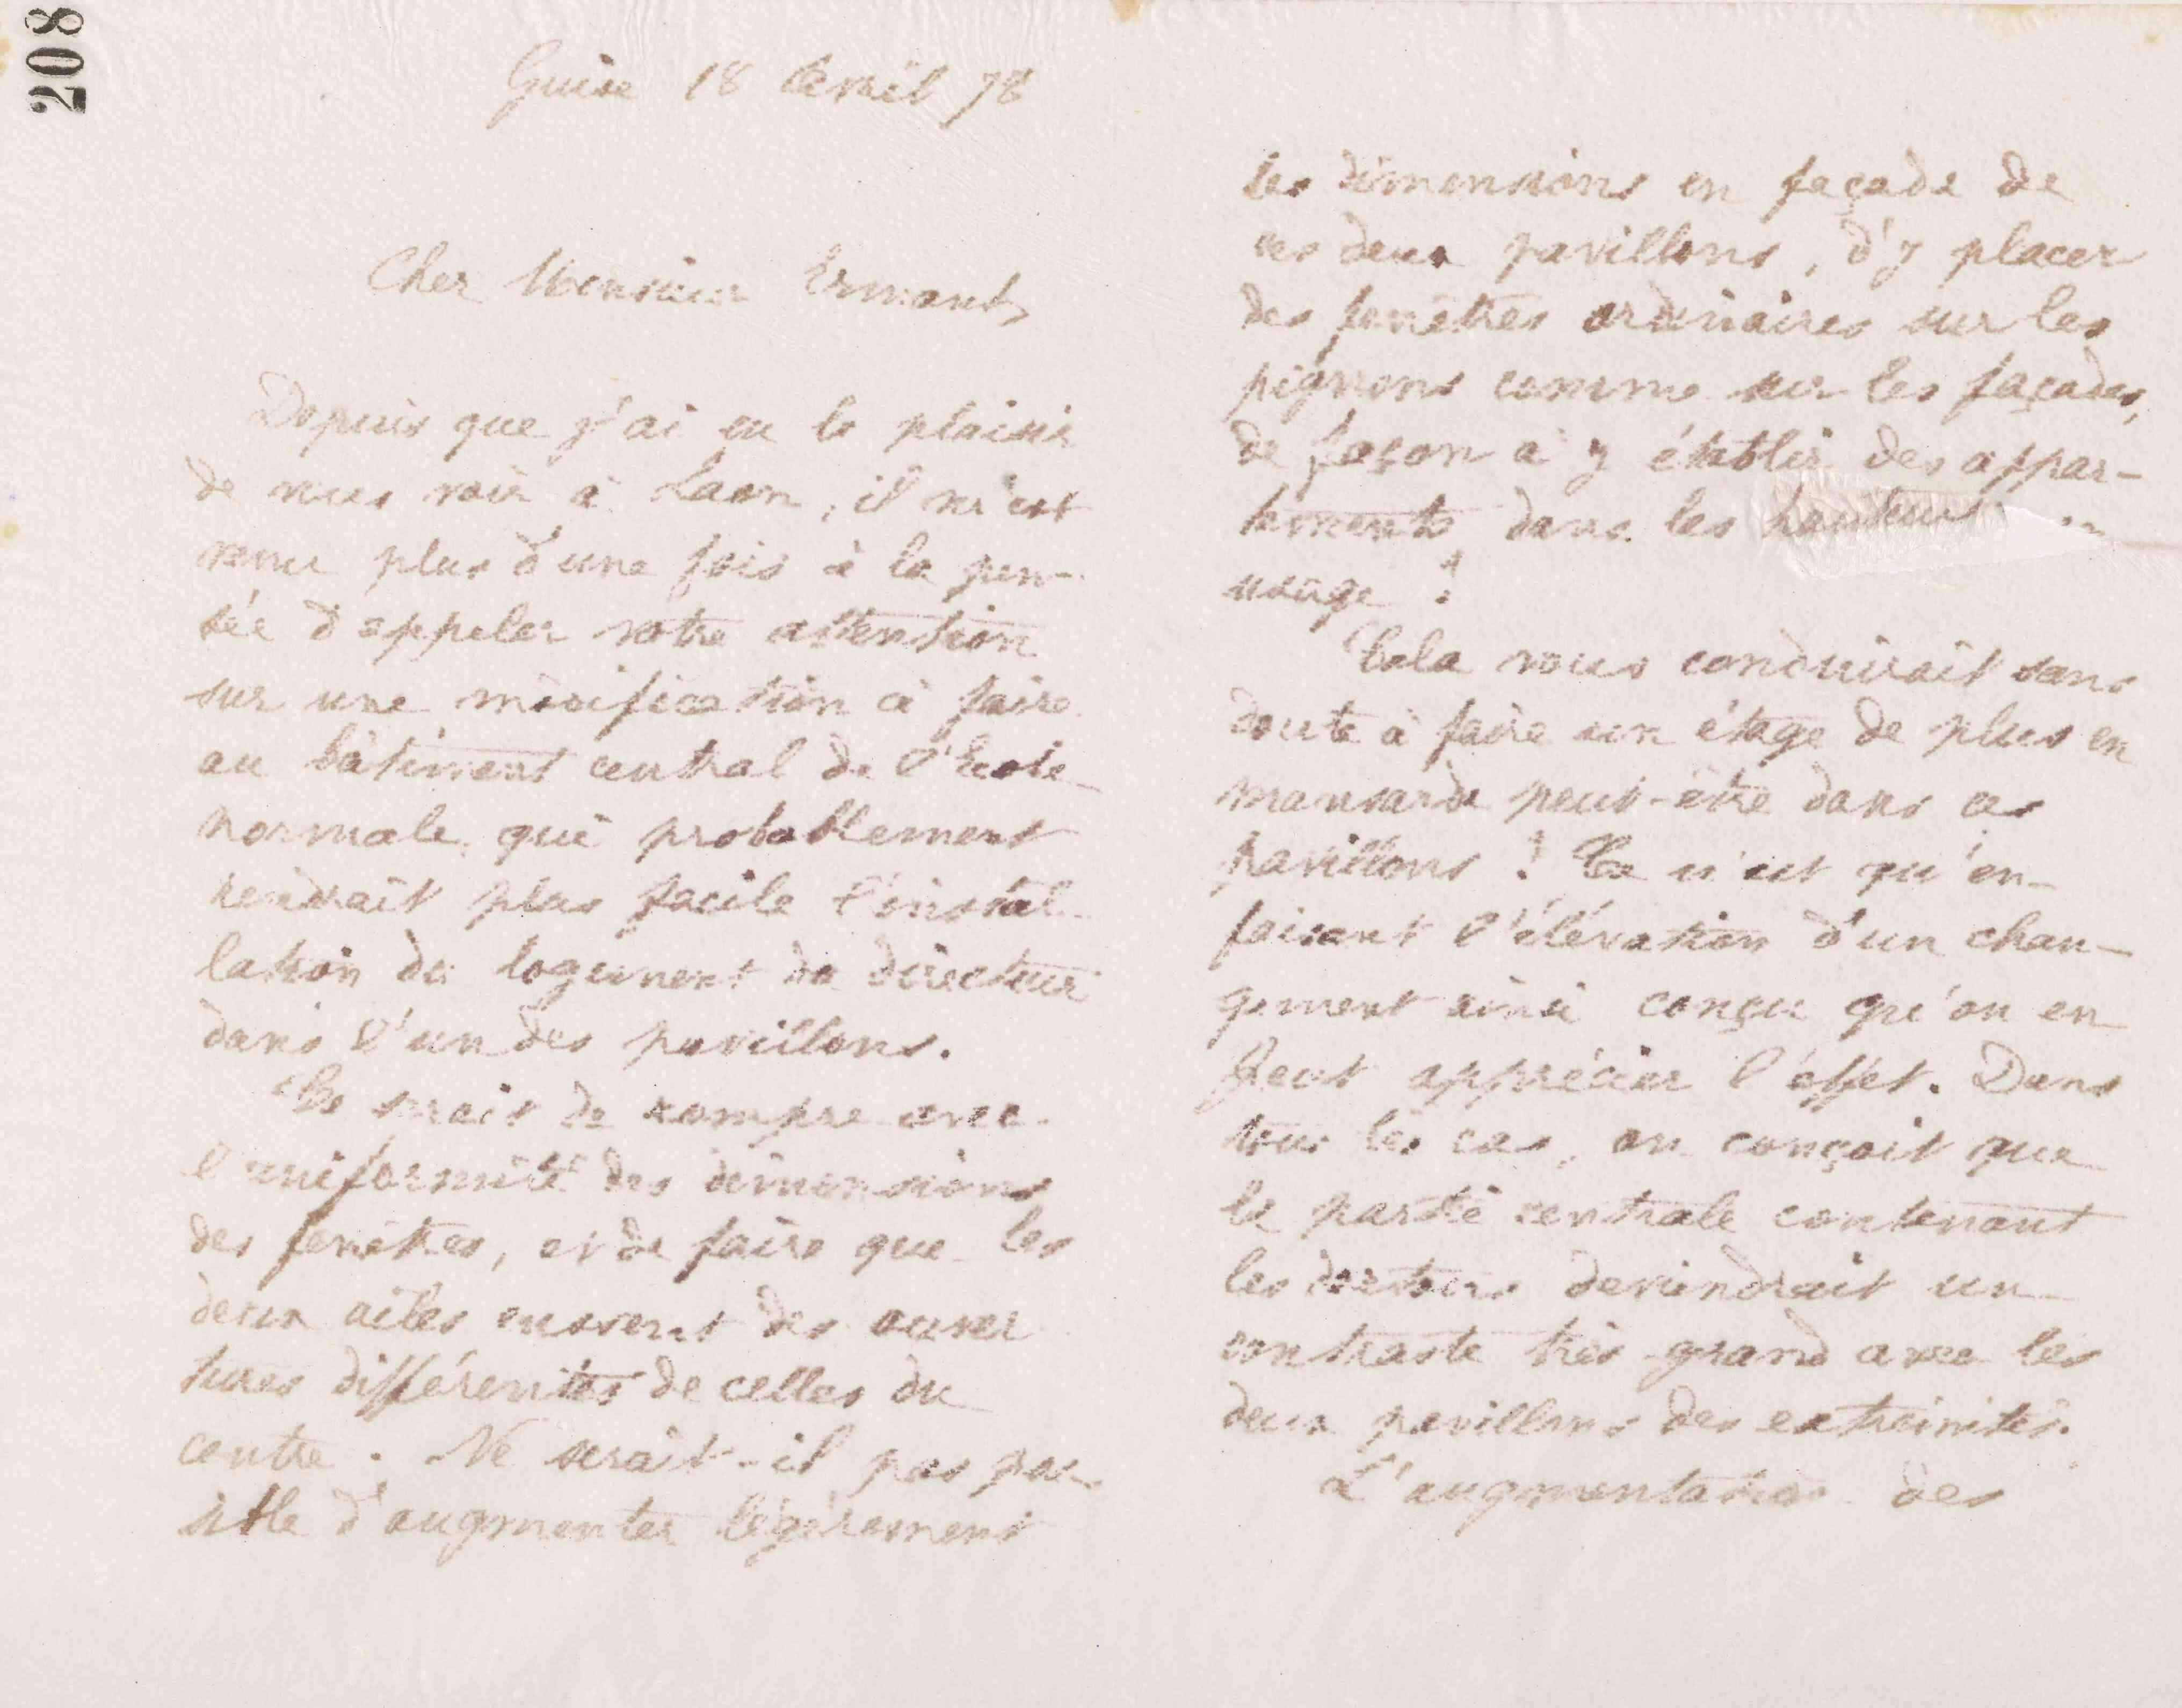 208
Guise 18 Avril 78
Cher Monsieur Ermant,
Depuis que j'ai eu le plaisir
de vous voir à Laon, il m'est
venu plus d'une fois à la pen-
sée d'appeler votre attention
sur une modification à faire
au bâtiment central de l'Ecole
normale, qui probablement
rendrait plus facile l'instal-
lation du logement du directeur
dans l'un des pavillons.
Ce serait de rompre avec
l'uniformité des dimensions
des fenêtres, et de faire que les
deux ailes eussent des ouver
tures différentes de celles du
centre. Ne serait-il pas pos-
sible d'augmenter légèrement
les dimensions en façade de
ces deux pavillons, d'y placer
des fenêtres ordinaires sur les
pignons comme sur les façades,
de façon à y établir des appar-
tements dans les hauteurs
usage ?
Cela vous conduirait sans
doute à faire un étage de plus en
mansarde peut-être dans ces
pavillons ? Ce n'est qu'en
faisant l'élévation d'un chan-
gement ainsi conçu qu'on en
peut apprécier l'effet. Dans
tous les cas, on conçoit que
la partie centrale contenant
les dortoirs deviendrait un
contraste très grand avec les
deux pavillons des extrémités.
L'augmentation des